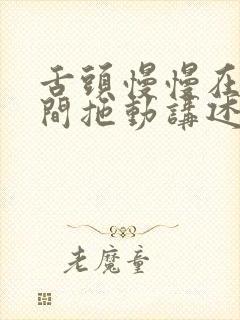 舌頭慢慢在
間拖動講述
老魔童